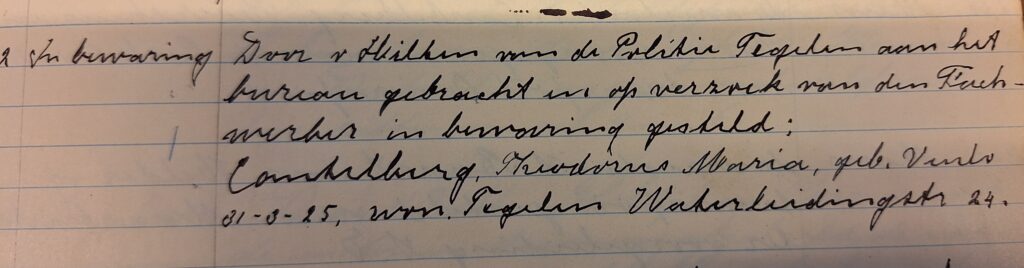 2 In bewaring Door v Hilten van de Politie Tegelen aan het
bureau gebracht en op verzoek van den Fach-
werber in bewaring gesteld;
Cantelberg, Theodorus Maria, geb. Venlo
31-3-25, won. Tegelen Waterleidingstr 24.